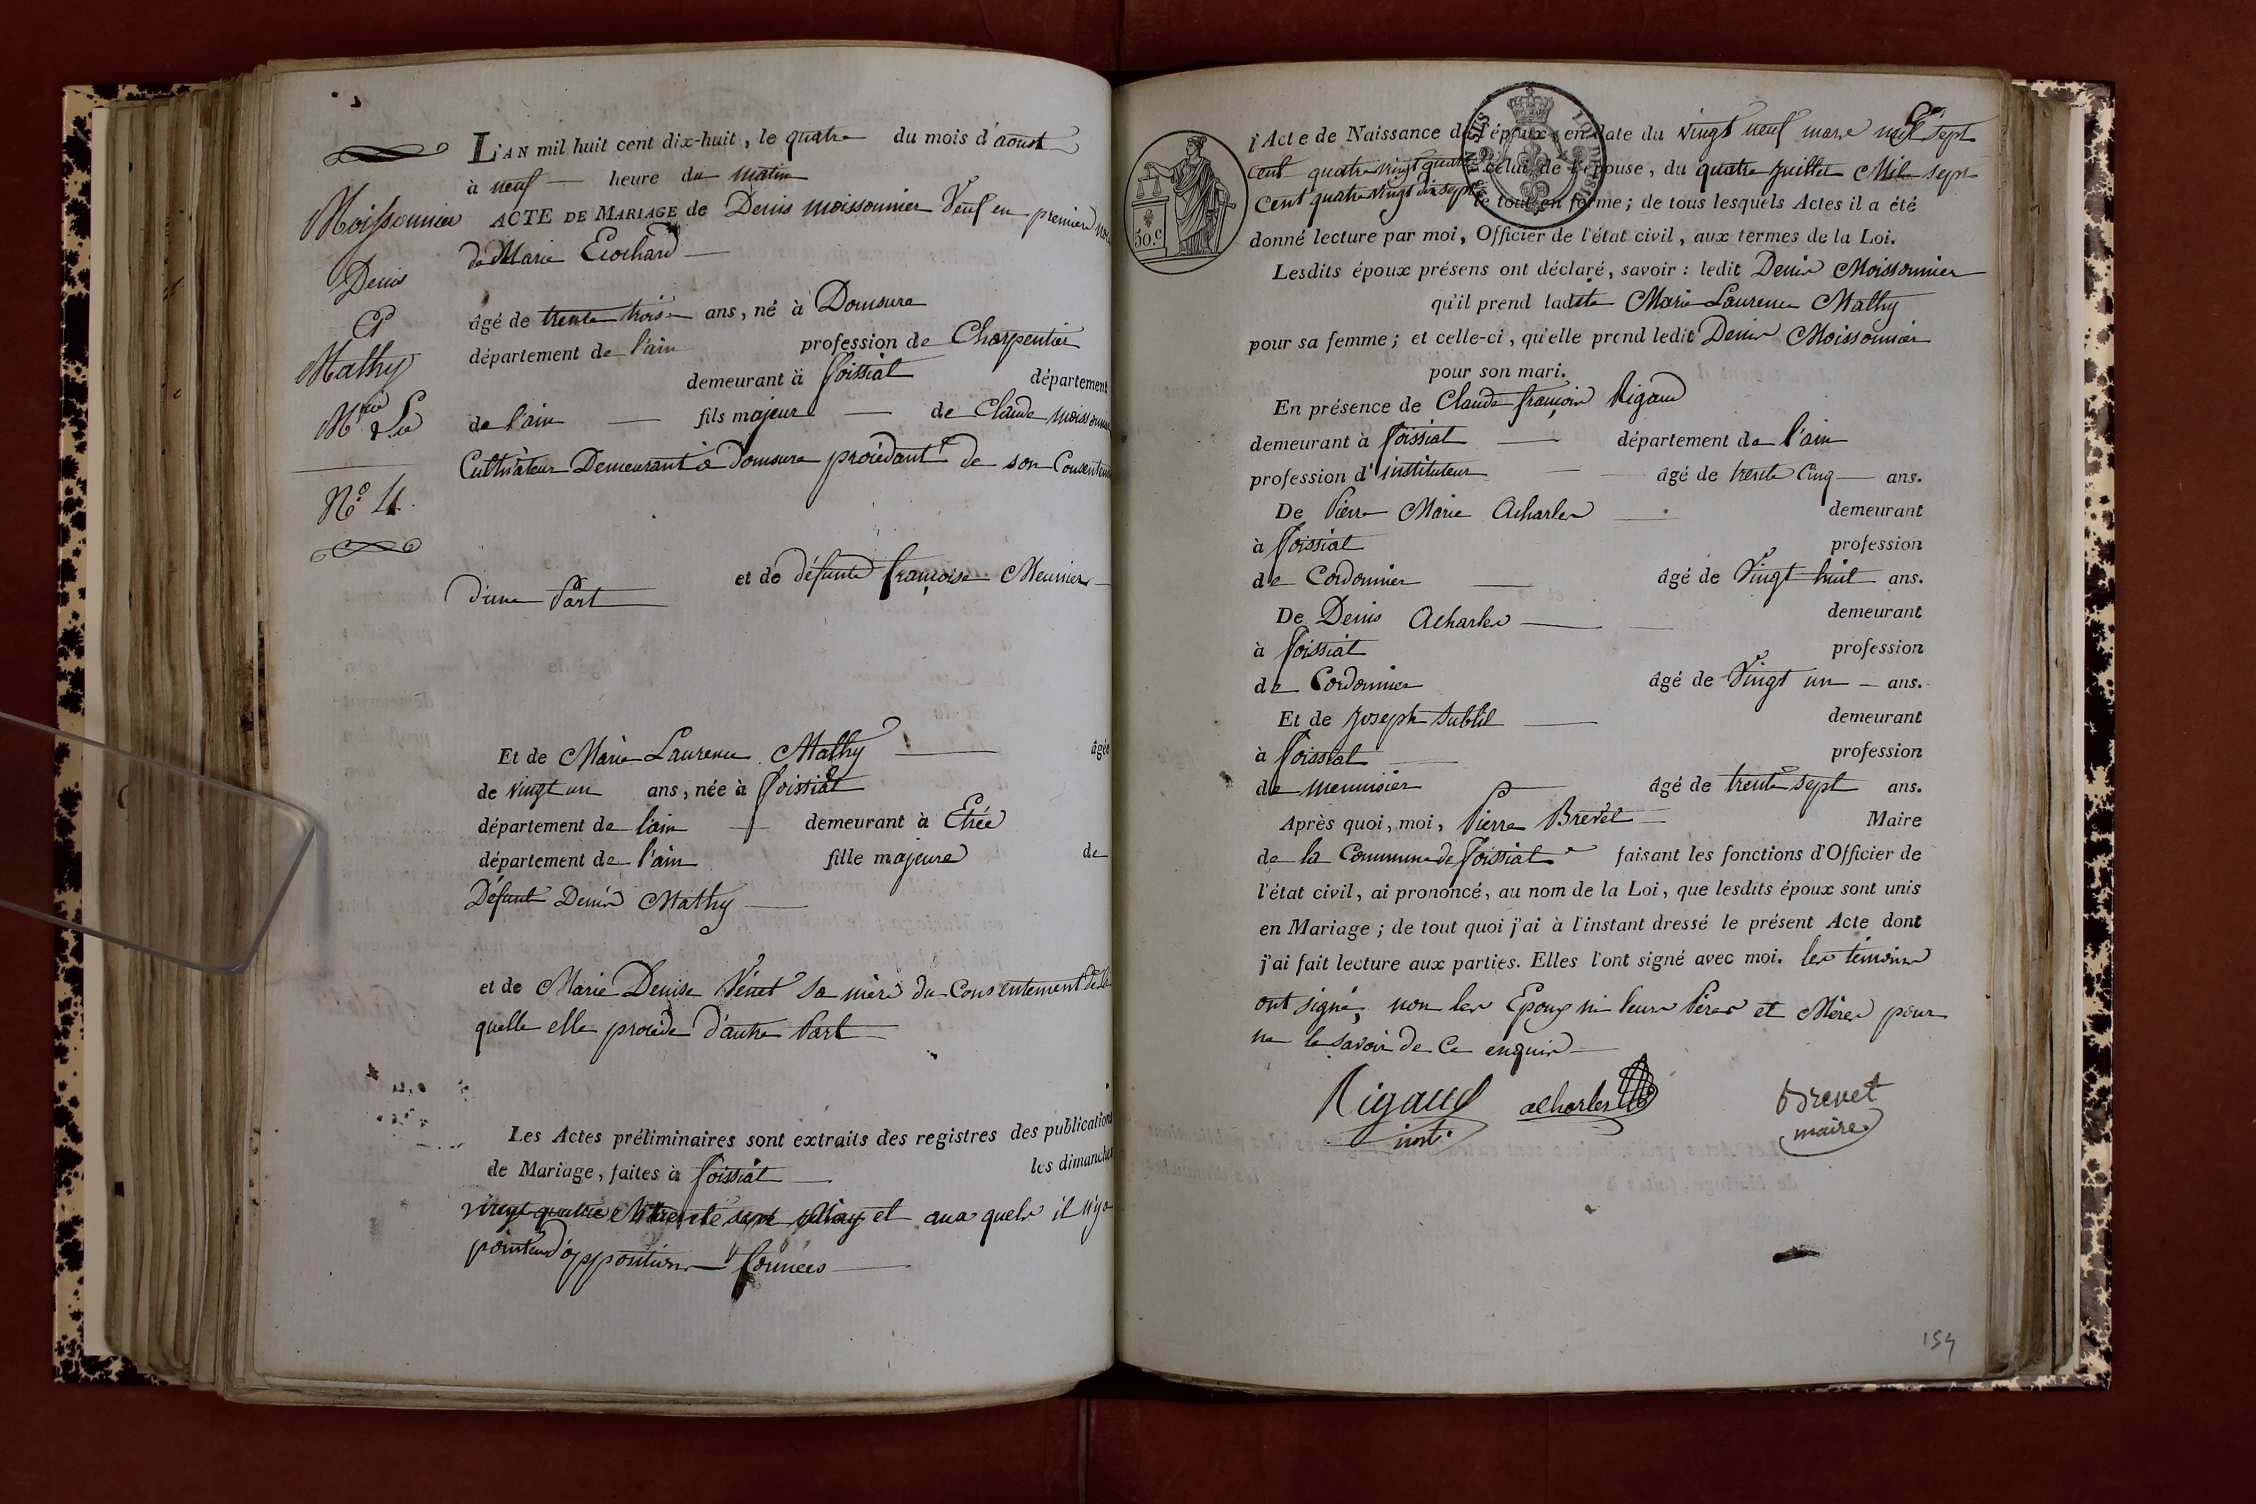 L'AN mil huit cent dix-huit, le quatre du mois d'aoust
à neuf heure du matin
Moissonnier
ACTE DE MARIAGE de Denis moissonnier Veuf en premiere
de Marie Ecochard
Denis
Et
Mathy
Mrie Lce
No 4.
âgé de trente trois ans, né à Domsure
département de l'ain profession de Charpentier
demeurant à foissiat département
de l'ain fils majeur de Claude moissonnier
Cultivateur Demeurant à Domsure procédant de son Consentement
et de défunte françoise Meunier
d'une Part
Et de Marie Laurence Mathy âgée
de vingt un ans, née à foissiat
département de l'ain demeurant à Etrée
département de l'ain fille majeure de
Défunt Denis Mathy
et de Marie Denise Vénet sa mère du Consentement de la
quelle elle procède d'autre Part
Les Actes préliminaires sont extraits des registres des publications
de Mariage, faites à foissiat les dimanches
vingt quatre et trente may et aux quels il n'y a
point eu d'oppositions formées
50.c
l'Acte de Naissance de l'époux en date du vingt neuf mars mil sept
cent quatre vingt quatre celui de l'épouse, du quatre juillet Mil sept
Cent quatre vingt dix sept le tout en forme; de tous lesquels Actes il a été
donné lecture par moi, Officier de l'état civil, aux termes de la Loi.
Lesdits époux présens ont déclaré, savoir: ledit Denis Moissonnier
qu'il prend ladite Marie Laurence Mathy
pour sa femme; et celle-ci, qu'elle prend ledit Denis Moissonnier
pour son mari.
En présence de Claude françois Rigaud
demeurant à foissiat département de l'ain
profession d'instituteur âgé de trente cinq ans.
De Pierre Marie Acharles demeurant
à foissiat profession
de Cordonnier âgé de Vingt huit ans.
De Denis Acharles demeurant
à foissiat profession
de Cordonnier âgé de Vingt un ans.
Et de joseph subtil demeurant
à foissiat profession
de menuisier âgé de trente sept ans.
Après quoi, moi, Pierre Brevet Maire
de la Commune de foissiat faisant les fonctions d'Officier de
l'état civil, ai prononcé, au nom de la Loi, que lesdits époux sont unis
en Mariage; de tout quoi j'ai à l'instant dressé le présent Acte dont
j'ai fait lecture aux parties. Elles l'ont signé avec moi. les témoins
ont signé, non les Epoux ni leurs Pères et Mères pour
ne le savoir de Ce enquis
Rigaud acharles Brevet
inst. maire
154